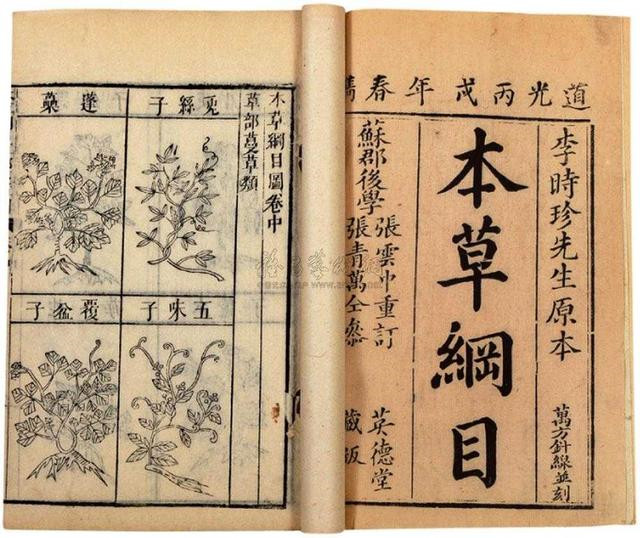 道光丙戌年春
李時珍先生原本
萬方針線並刻
本草綱目
蘇郡後學
張雲中重訂
張青萬仝參
英德堂
藏版
本草綱目圖卷中
草部蔓草類
兔絲子
蓬
五味子
覆盆子